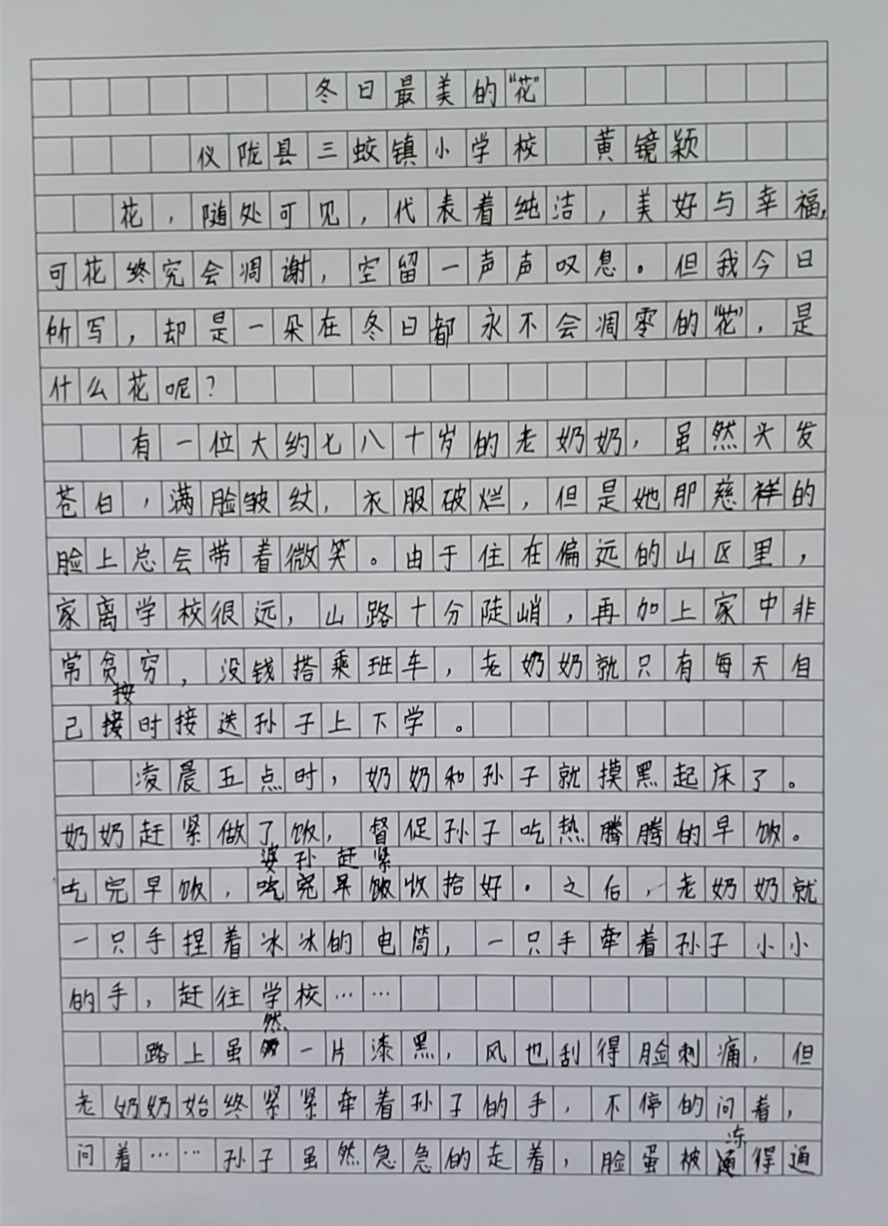 冬日最美的“花”
仪陇县三蛟镇小学校 黄镜颖
花，随处可见，代表着纯洁，美好与幸福，
可花终究会凋谢，空留一声声叹息。但我今日
所写，却是一朵在冬日都永不会凋零的“花”，是
什么花呢？
有一位大约七八十岁的老奶奶，虽然头发
苍白，满脸皱纹，衣服破烂，但是她那慈祥的
脸上总会带着微笑。由于住在偏远的山区里，
家离学校很远，山路十分陡峭，再加上家中非
常贫穷，没钱搭乘班车，老奶奶就只有每天自
己按时接送孙子上下学。
凌晨五点时，奶奶和孙子就摸黑起床了。
奶奶赶紧做了饭，督促孙子吃热腾腾的早饭。
吃完早饭，婆孙赶紧收拾好。之后，老奶奶就
一只手捏着冰冰的电筒，一只手牵着孙子小小
的手，赶往学校……
路上虽然一片漆黑，风也刮得脸刺痛，但
老奶奶始终紧紧牵着孙子的手，不停的问着，
问着……孙子虽然急急的走着，脸蛋被冻得通